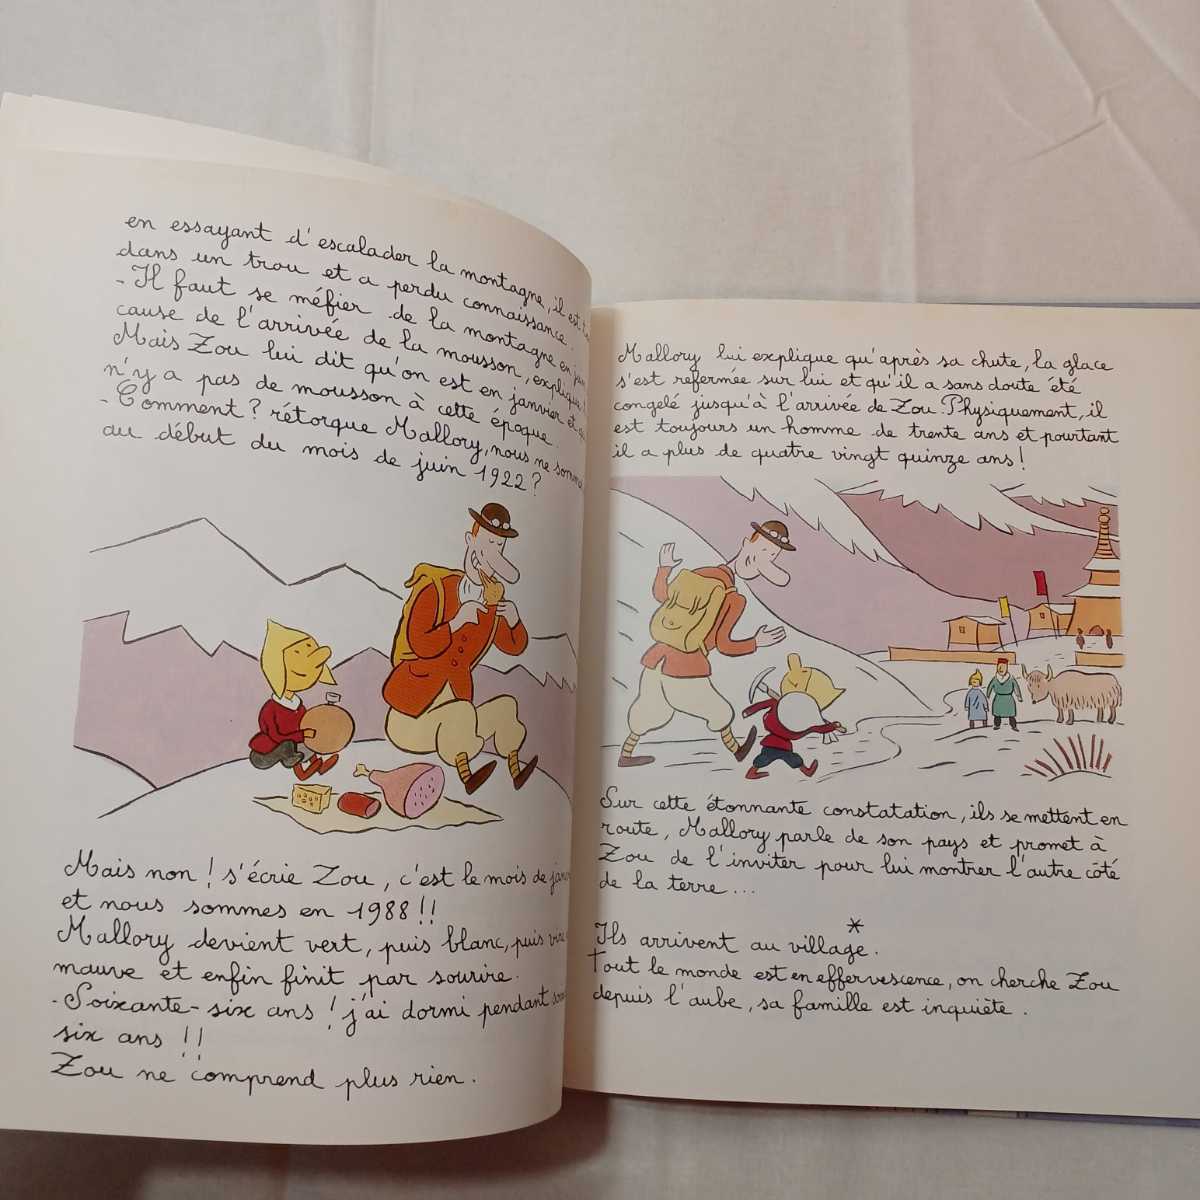 en essayant d'escalader la montagne, il est
dans un trou et a perdu connaissance.
- Il faut se méfier de la montagne en
cause de l'arrivée de la mousson, explique
Mais Zou lui dit qu'on est en janvier et
n'y a pas de mousson à cette époque.
- Comment ? rétorque Mallory, nous ne
au début du mois de juin 1922 ?
Mais non ! s'écrie Zou, c'est le mois de
et nous sommes en 1988 !!
Mallory devient vert, puis blanc, puis
mauve et enfin finit par sourire.
- Soixante-six ans ! j'ai dormi pendant
six ans !!
Zou ne comprend plus rien.
Mallory lui explique qu'après sa chute, la glace
s'est refermée sur lui et qu'il a sans doute été
congelé jusqu'à l'arrivée de Zou. Physiquement, il
est toujours un homme de trente ans et pourtant
il a plus de quatre vingt quinze ans !
Sur cette étonnante constatation, ils se mettent en
route, Mallory parle de son pays et promet à
Zou de l'inviter pour lui montrer l'autre côté
de la terre...
*
Ils arrivent au village.
Tout le monde est en effervescence, on cherche Zou
depuis l'aube, sa famille est inquiète.